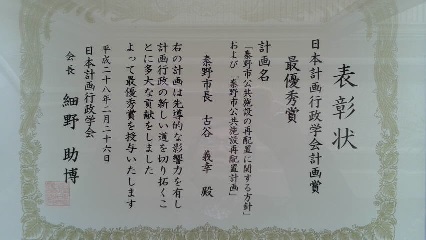 表彰状
日本計画行政学会計画賞
最優秀賞
計画名
「秦野市公共施設の再配置に関する方針」
および「秦野市公共施設再配置計画」
秦野市長 古谷 義幸 殿
右の計画は先導的な影響力を有し
計画行政の新しい道を切り拓くこ
とに多大な貢献をしました
よって最優秀賞を授与いたします
平成二十八年二月二十六日
日本計画行政学会
会長 細野 助博